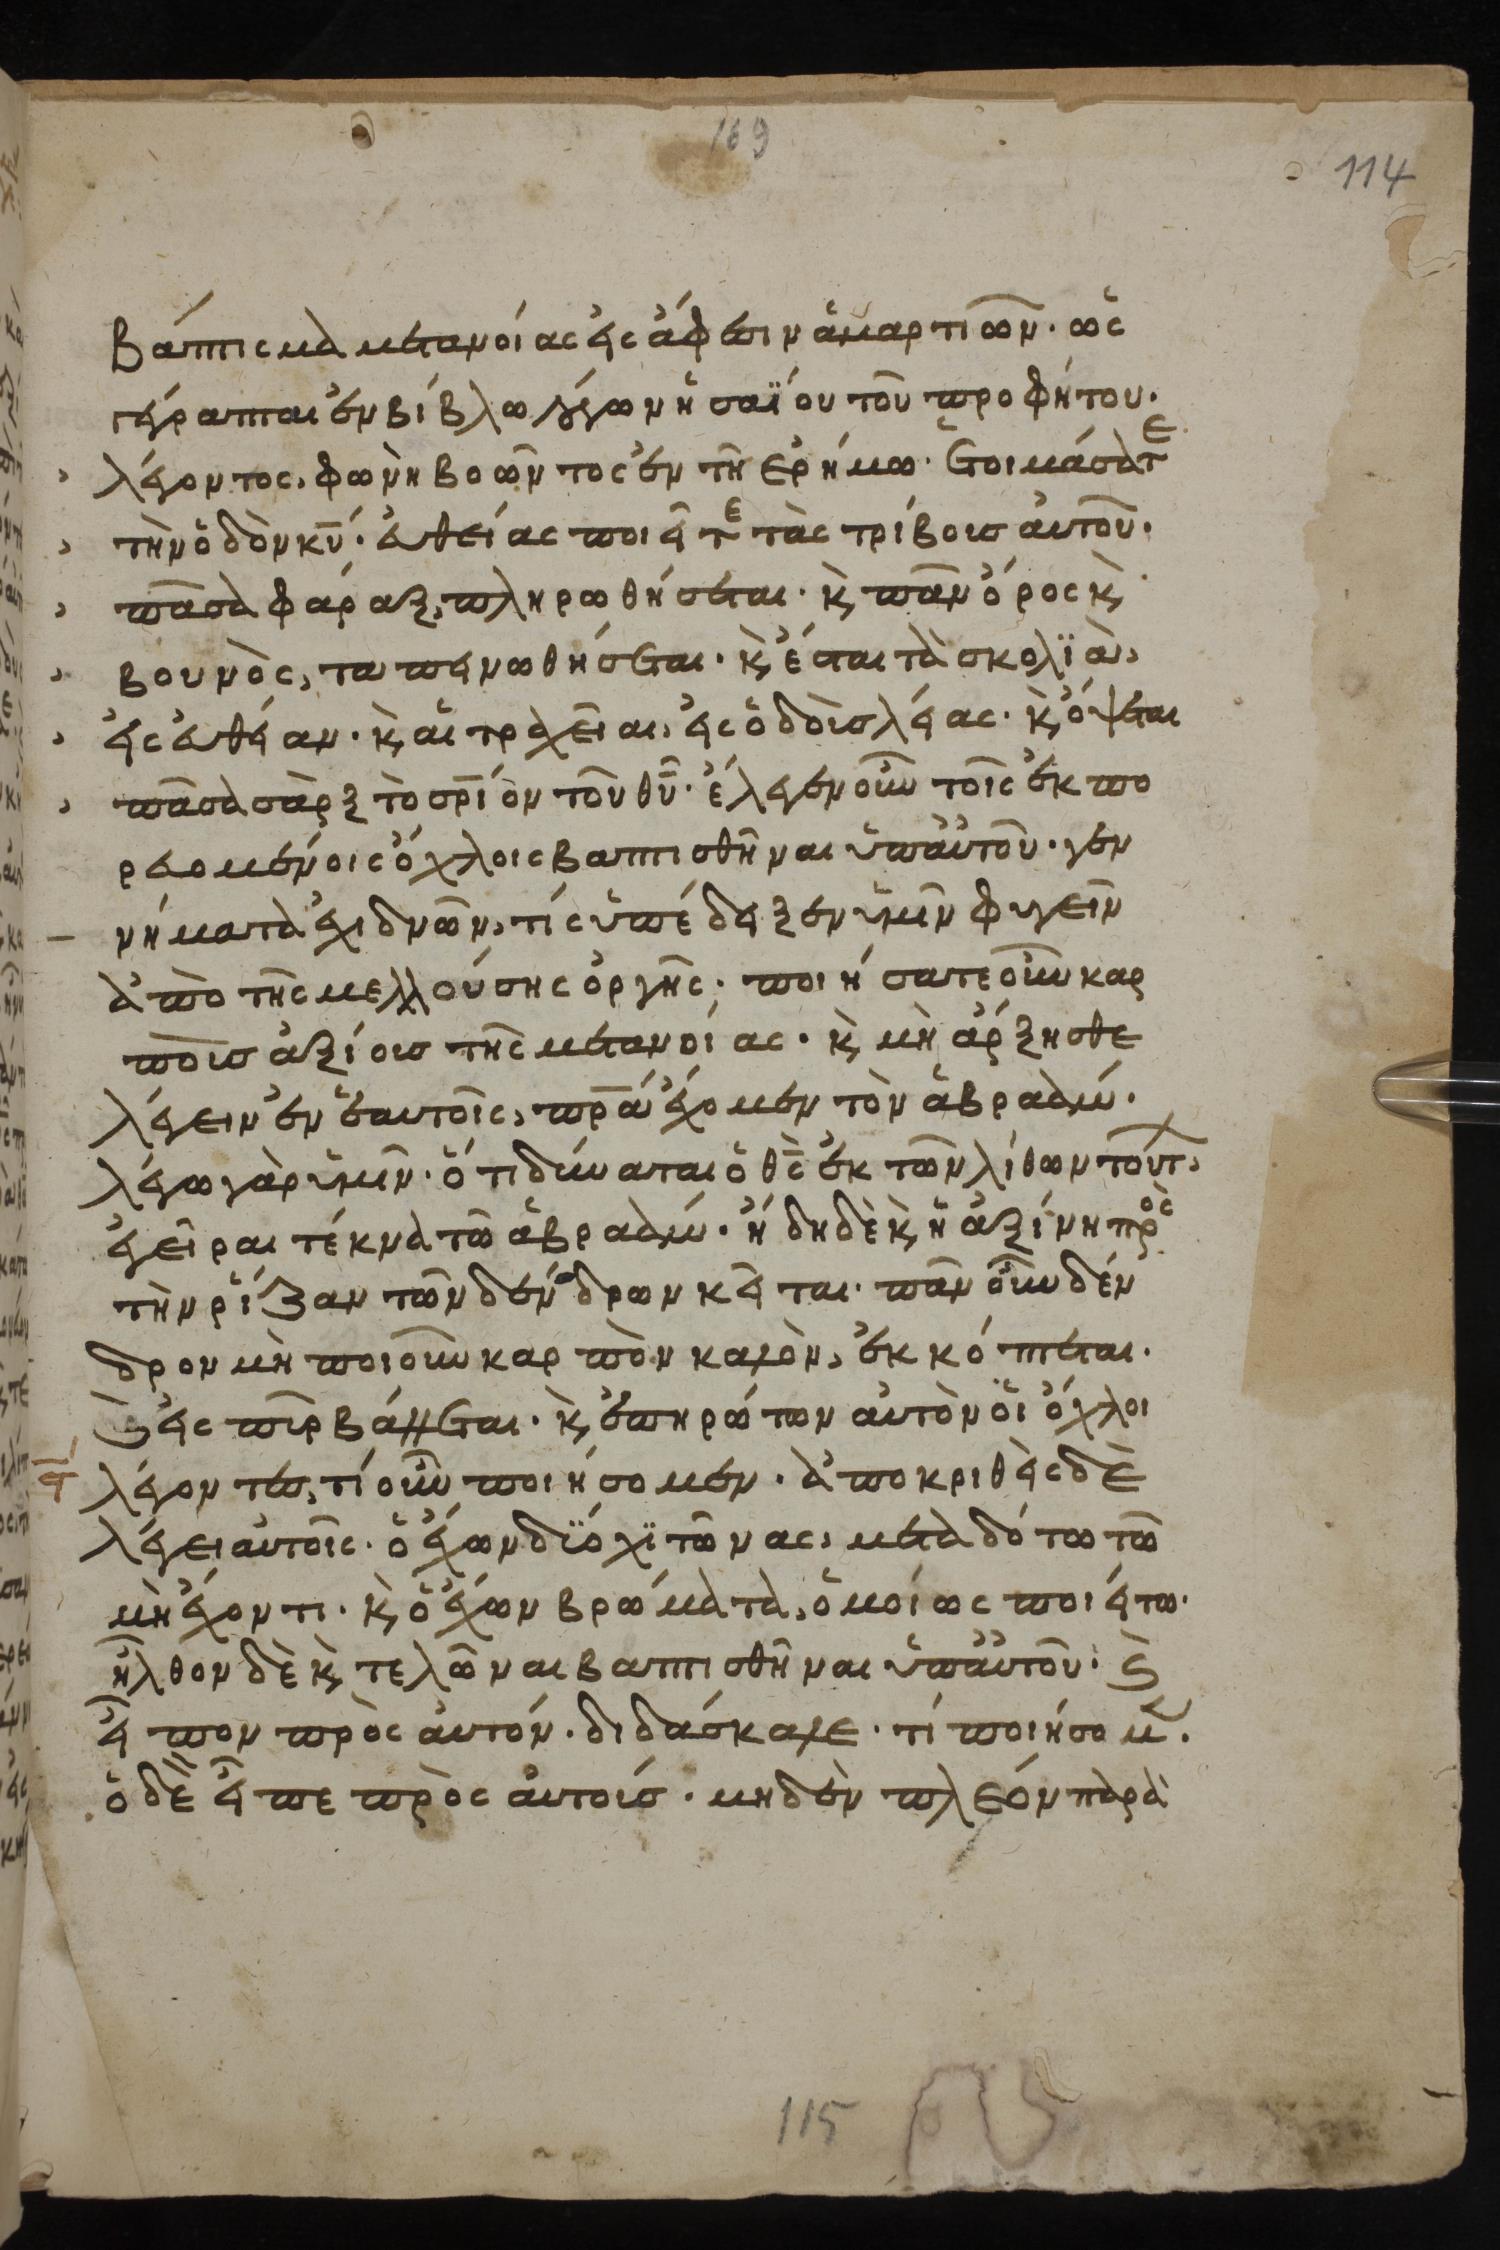 169
114
βάπτισμα μετανοίας εἰς ἄφεσιν ἁμαρτιῶν· ὡς
γέγραπται ἐν βίβλω λόγων ἡσαΐου τοῦ προφήτου·
λέγοντος, φωνὴ βοῶντος ἐν τῆ ἐρήμω· ἑτοιμάσατε
τὴν ὁδὸν κυ· εὐθείας ποιεῖτε τὰς τρίβους αὐτοῦ·
πᾶσα φάραξ, πληρωθήσεται· κ πᾶν ὄρος κ
βουνὸς, ταπεινωθήσεται· κ ἔσται τὰ σκολϊὰ,
εἰς εὐθείαν· κ αἱ τραχεῖαι, εἰς ὁδοὺς λείας· κ ὄψεται
πᾶσα σὰρξ τὸ σριον τοῦ θυ· ἔλεγεν οὖν τοῖς ἐκπο
ρευομένοις ὄχλοις βαπτισθῆναι ὑπ' αὐτοῦ· γεν
νήματα ἐχιδνῶν, τίς ὑπέδειξεν ὑμῖν φυγεῖν
ἀπὸ τῆς μελλούσης ὀργῆς· ποιήσατε οὖν καρ
ποὺς ἀξίους τῆς μετανοίας· κ μὴ ἄρξησθε
λέγειν ἐν ἑαυτοῖς, πρα ἔχομεν τὸν ἀβραάμ·
λέγω γὰρ ὑμῖν· ὅτι δύναται ὁ θς ἐκ τῶν λίθων τούτ,
ἐγεῖραι τέκνα τῶ ἀβραάμ· ἤδη δὲ κ ἡ ἀξίνη πρὸς
τὴν ρίζαν τῶν δένδρων κεῖται· πᾶν οὖν δέν
δρον μὴ ποιοῦν καρπὸν καλὸν, ἐκκόπτεται·
κ εἰς πῦρ βάλλεται· κ ἐπηρώτων αὐτὸν οἱ ὄχλοι
λέγοντες, τί οὖν ποιήσομεν· ἀποκριθεὶς δὲ
λέγει αὐτοῖς· ὁ ἔχων δϋό χϊτῶνας, μεταδότω τῶ
μὴ ἔχοντι· κ ὁ ἔχων βρώματα, ὁμοίως ποιείτω·
ἦλθον δὲ κ τελῶναι βαπτισθῆναι ὑπ' αὐτοῦ· κ
εἶπον πρὸς αὐτόν· διδάσκαλε· τί ποιήσομεν·
ὁ δὲ εἶπε πρὸς αὐτούς· μηδὲν πλέον παρὰ
115